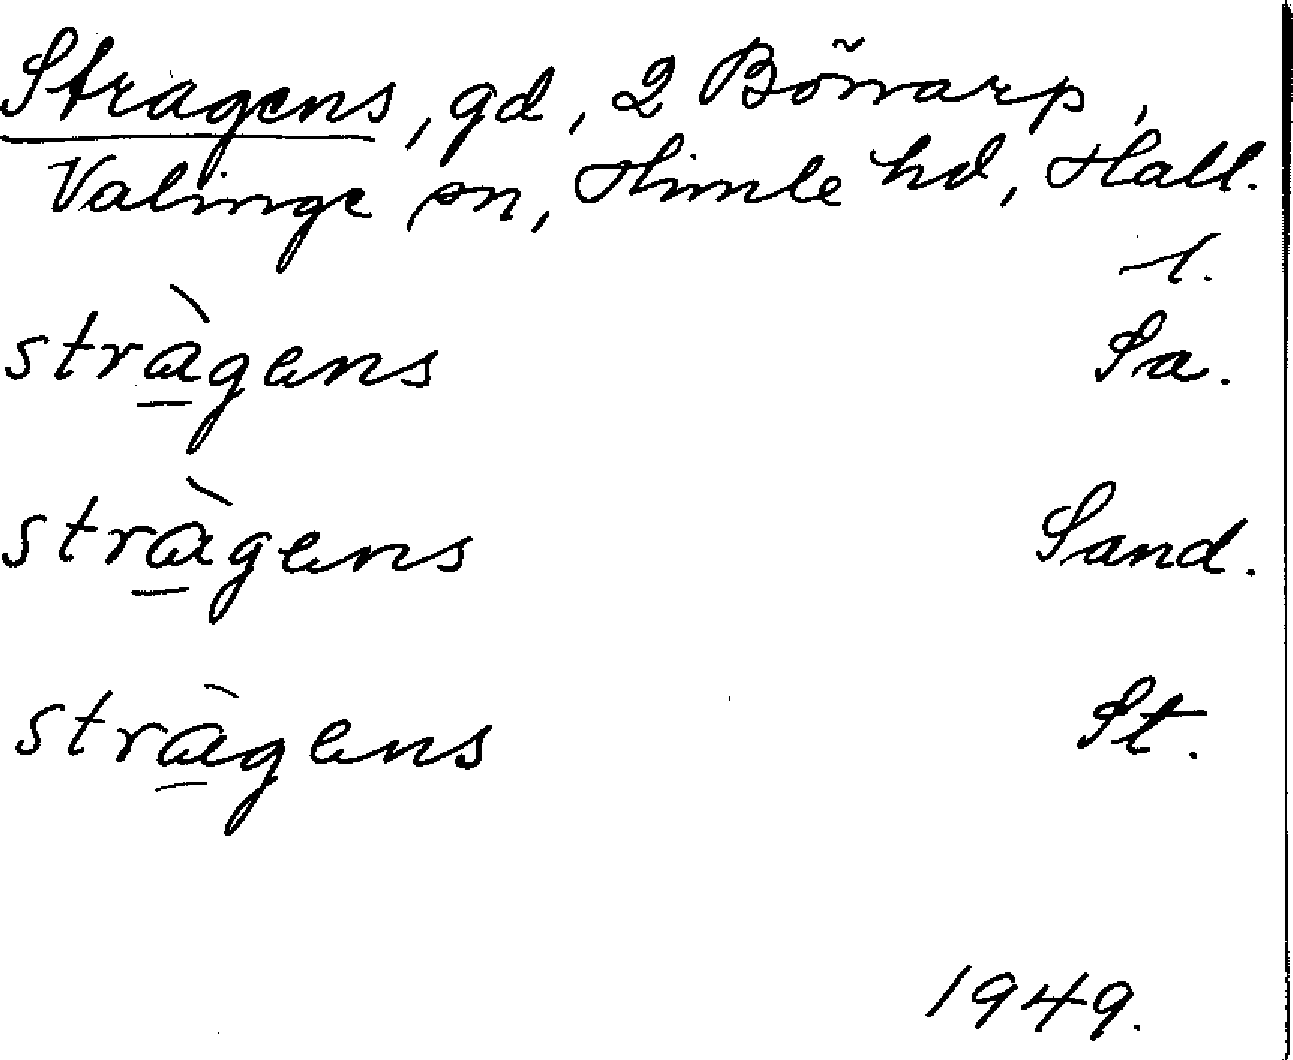 Stragens, gd, 2 Börrarp,
Valinge sn, Himle hd, Hall.
l.
stràgens Sa.
stràgens Sand.
stràgens St.
1949.